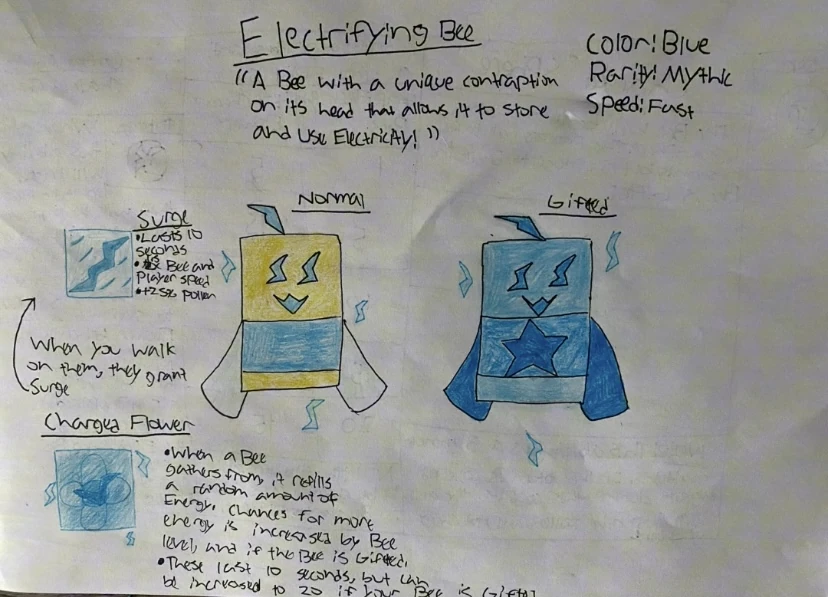 Electrifying Bee
"A Bee with a unique contraption
on its head that allows it to store
and use Electricity!"
Color: Blue
Rarity: Mythic
Speed: Fast
Surge
•Lasts 10
seconds
• Bee and
Player speed
•+25% pollen
When you walk
on them, they grant
Surge
Normal
Gifted
Charged Flower
•When a Bee
gathers from, it refills
a random amount of
Energy, chances for more
energy is increased by Bee
level, and if the Bee is Gifted.
•These last 10 seconds, but can
be increased to 20 if your Bee is Gifted